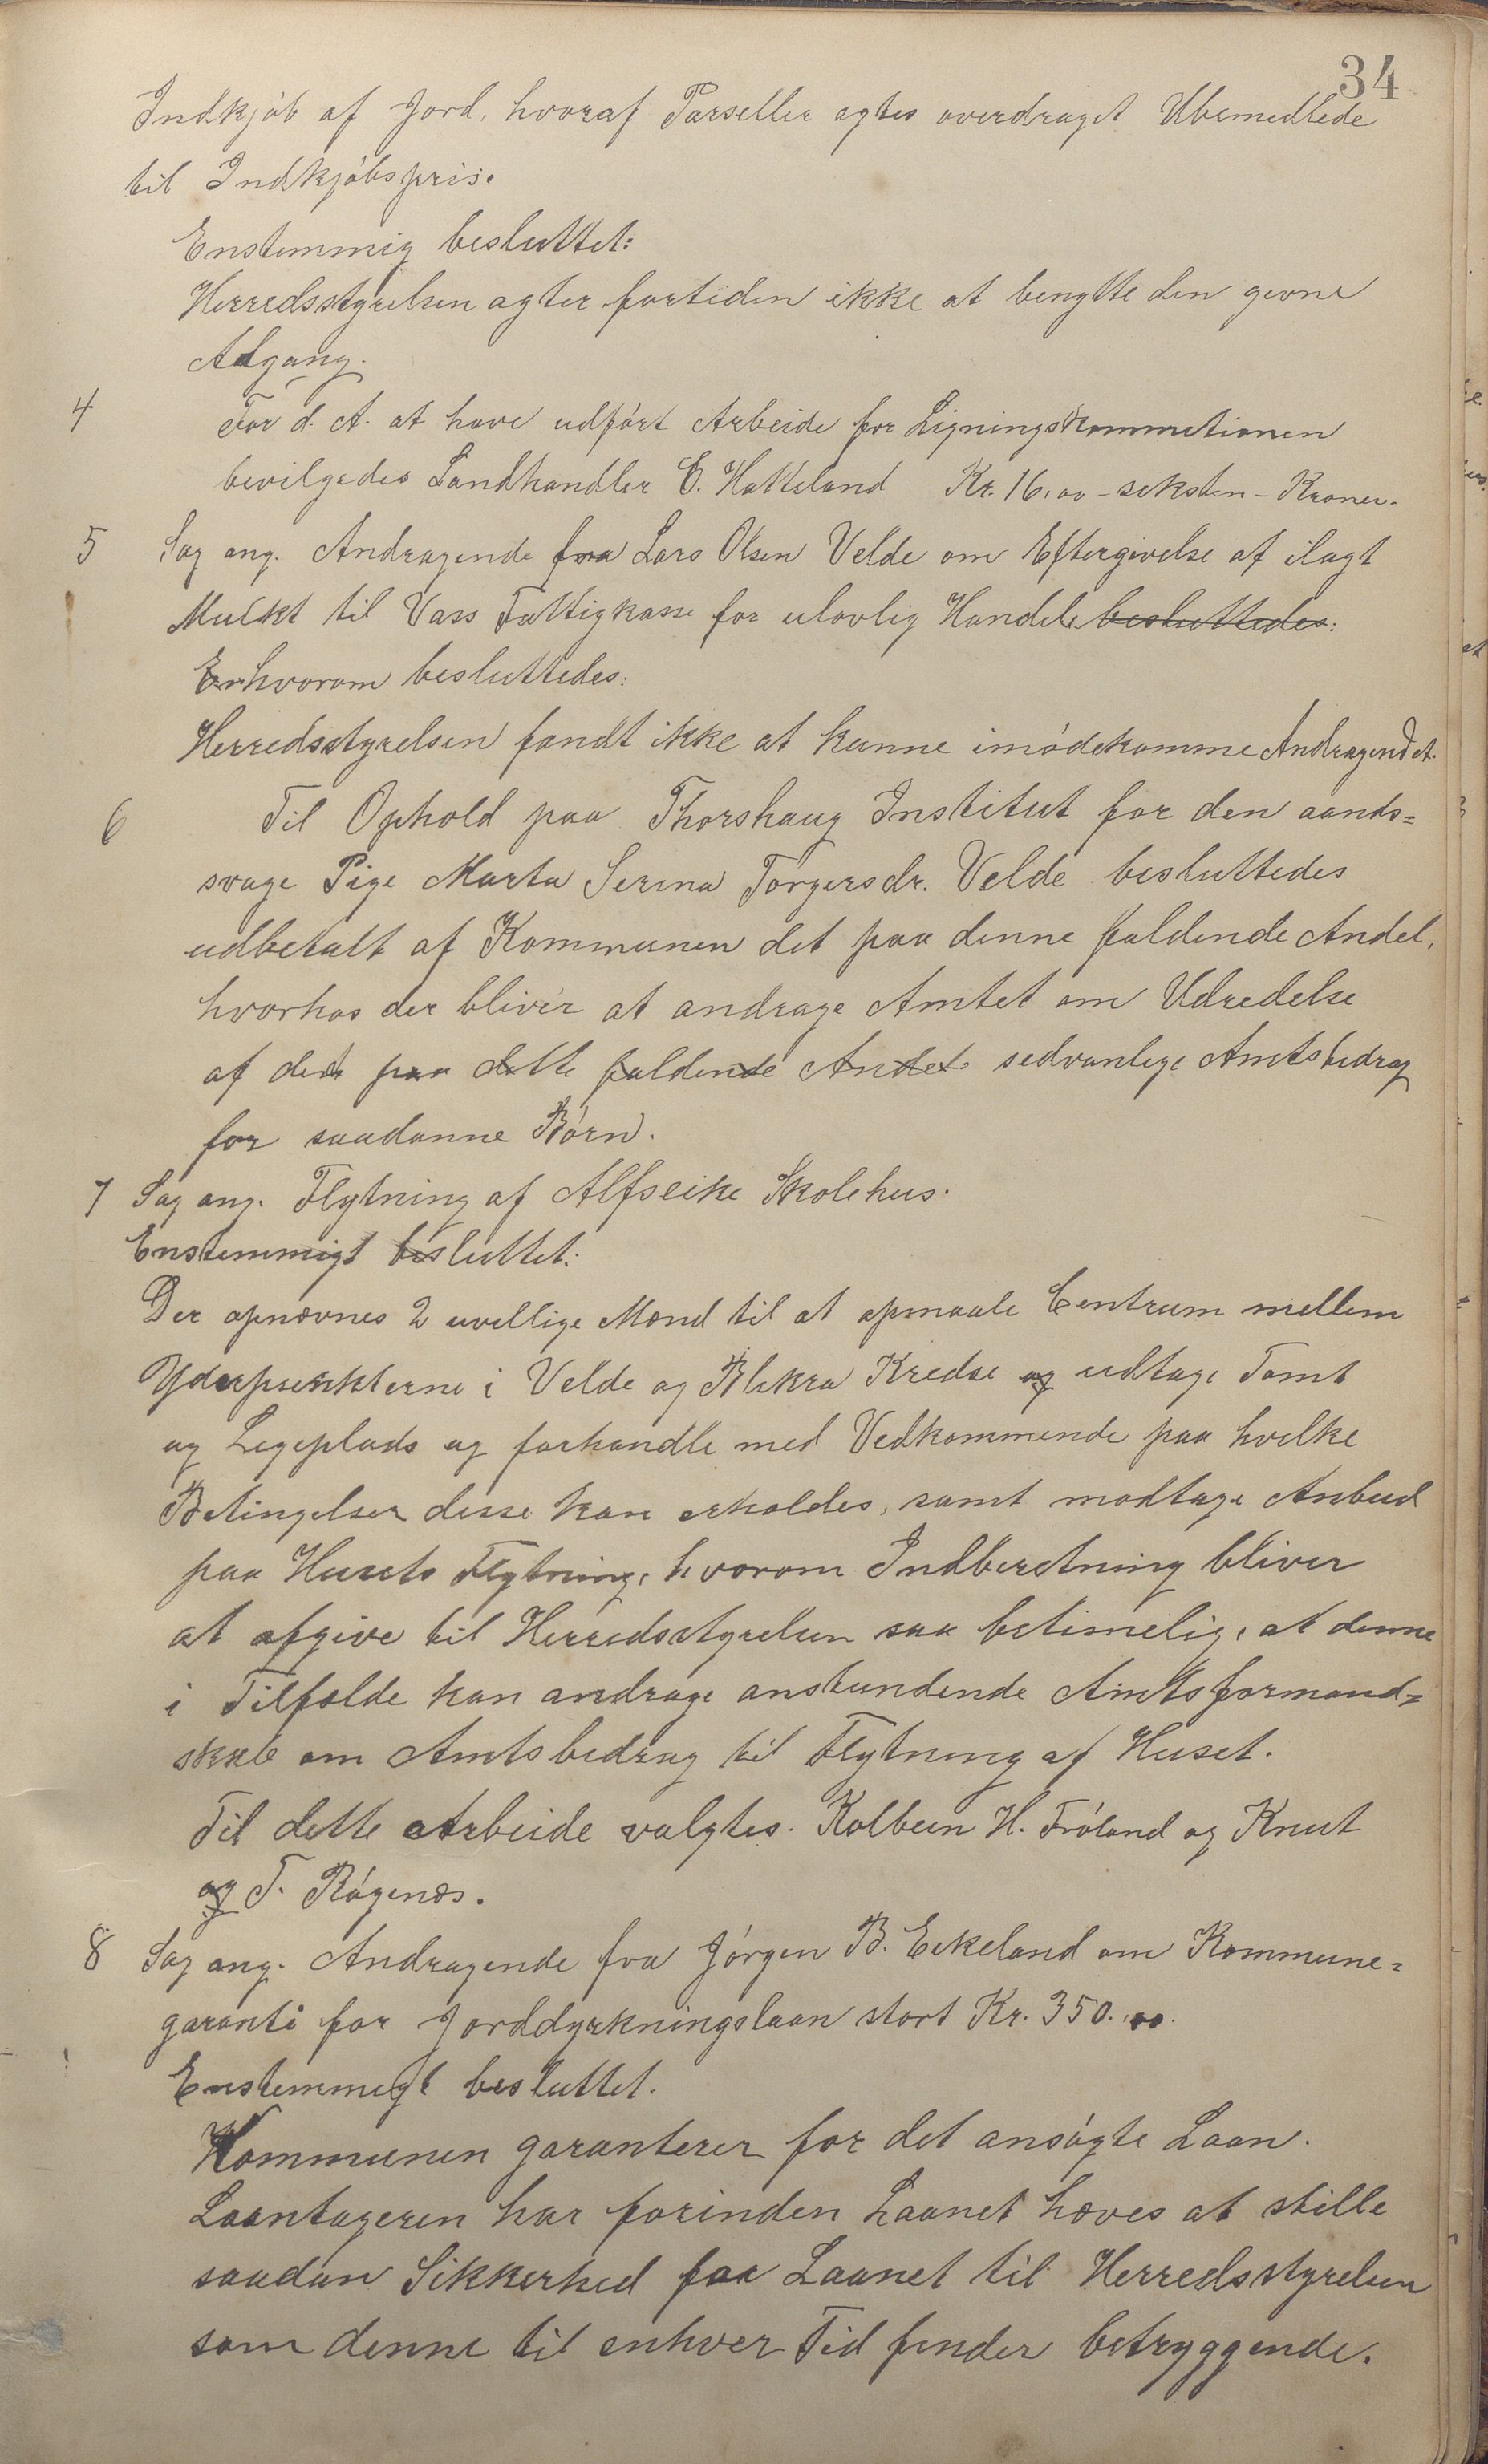 34
Indkjøb af Jord, hvoraf Parseller agtes overdraget Ubemedlede
til Indkjøbspris.
Enstemmig besluttet:
Herredsstyrelsen agter fortiden ikke at benytte den givne
Adgang.
4 For d. A. at have udført Arbeide for Ligningskommitionen
bevilgedes Landhandler E. Hatteland Kr. 16,00 - seksten - Kroner.
5 Sag ang. Andragende fra Lars Olsen Velde om Eftergivelse af ilagt
Mulkt til Vass Fattigkasse for ulovlig Handel besluttedes:
Erhvorom besluttedes:
Herredsstyrelsen fandt ikke at kunne imødekomme Andragendet.
6 Til Ophold paa Thorshaug Institut for den aands=
svage Pige Marta Serina Torgersdr. Velde besluttedes
udbetalt af Kommunen det paa denne faldende Andel,
hvorhos der bliver at andrage Amtet om Udredelse
af det paa dette faldende Andel. sedvanlige Amtsbidrag
for saadanne Børn.
7 Sag ang. Flytning af Alfseike Skolehus.
Enstemmigt besluttet:
Der opnævnes 2 uvillige Mænd til at opmaale Centrum mellem
Yderpunkterne i Velde og Blikra Kredse og udtage Tomt
og Legeplads og forhandle med Vedkommende paa hvilke
Betingelser disse kan erholdes, samt modtage Anbud
paa Husets Flytning, hvorom Indberetning bliver
at afgive til Herredsstyrelsen saa betimelig, at denne
i Tilfælde kan andrage anstundende Amtsformand=
skab om Amtsbidrag til Flytning af Huset.
Til dette Arbeide valgtes. Kolbein H. Frøland og Knut
og T. Røgenes.
8 Sag ang. Andragende fra Jørgen B. Eikeland om Kommune=
garanti for Jorddyrkningslaan stort Kr. 350.00.
Enstemmigt besluttet.
Kommunen garanterer for det ansøgte Laan.
Laantageren har forinden Laanet hæves at stille
saadan Sikkerhed for Laanet til Herredsstyrelsen
som denne til enhver Tid finder betryggende.